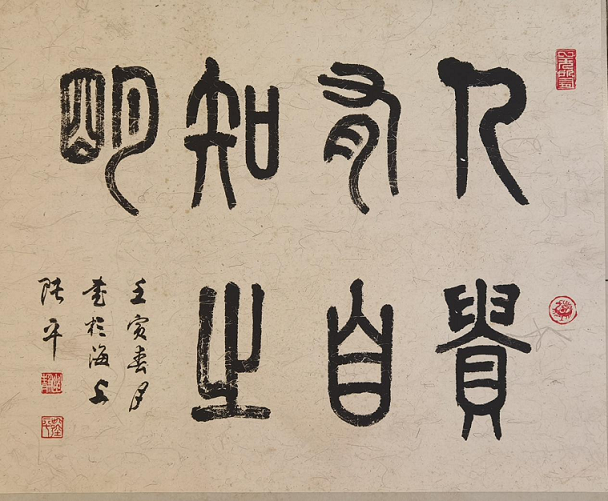 人貴
有自
知之
明
壬寅春月
書於海上
陸平